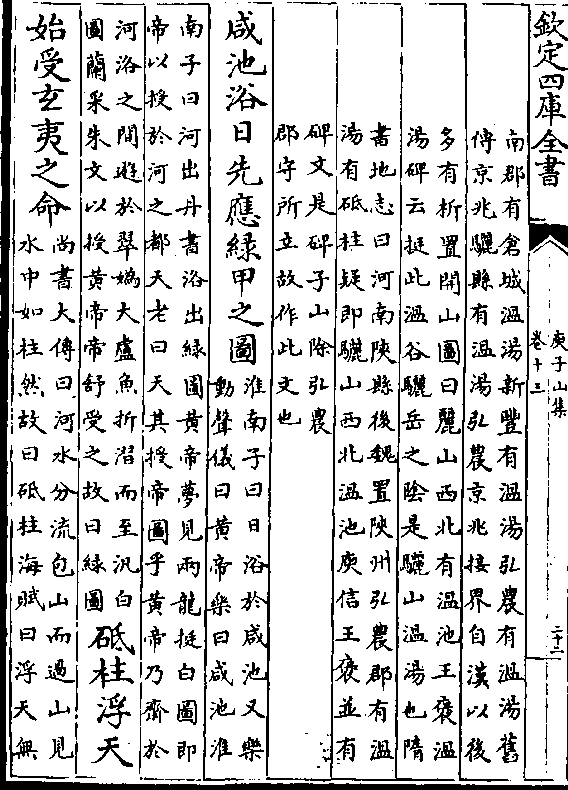 欽定四庫全書
庾子山集
卷十三
二十二
南郡有倉城溫湯新豐有溫湯弘農有溫湯舊
傳京兆驪縣有溫湯弘農京兆接界自漢以後
多有析置開山圖曰麗山西北有溫池王褒溫
湯碑云挺此溫谷驪岳之陰是驪山溫湯也隋
書地志曰河南陝縣後魏置陝州弘農郡有溫
湯有砥柱疑即驪山西北溫池庾信王褒並有
碑文是碑子山除弘農
郡守所立故作此文也
咸池浴日先應綠甲之圖
淮南子曰日浴於咸池又樂
動聲儀曰黃帝樂曰咸池淮
南子曰河出丹書洛出綠圖黃帝夢見兩龍挺白圖即
帝以授於河之都天老曰天其授帝圖乎黃帝乃齋於
河洛之間遊於翠媯大盧魚折溜而至汎白
圖蘭采朱文以授黃帝帝舒受之故曰綠圖
砥柱浮天
始受玄夷之命
尚書大傳曰河水分流包山而過山見
水中如柱然故曰砥柱海賦曰浮天無